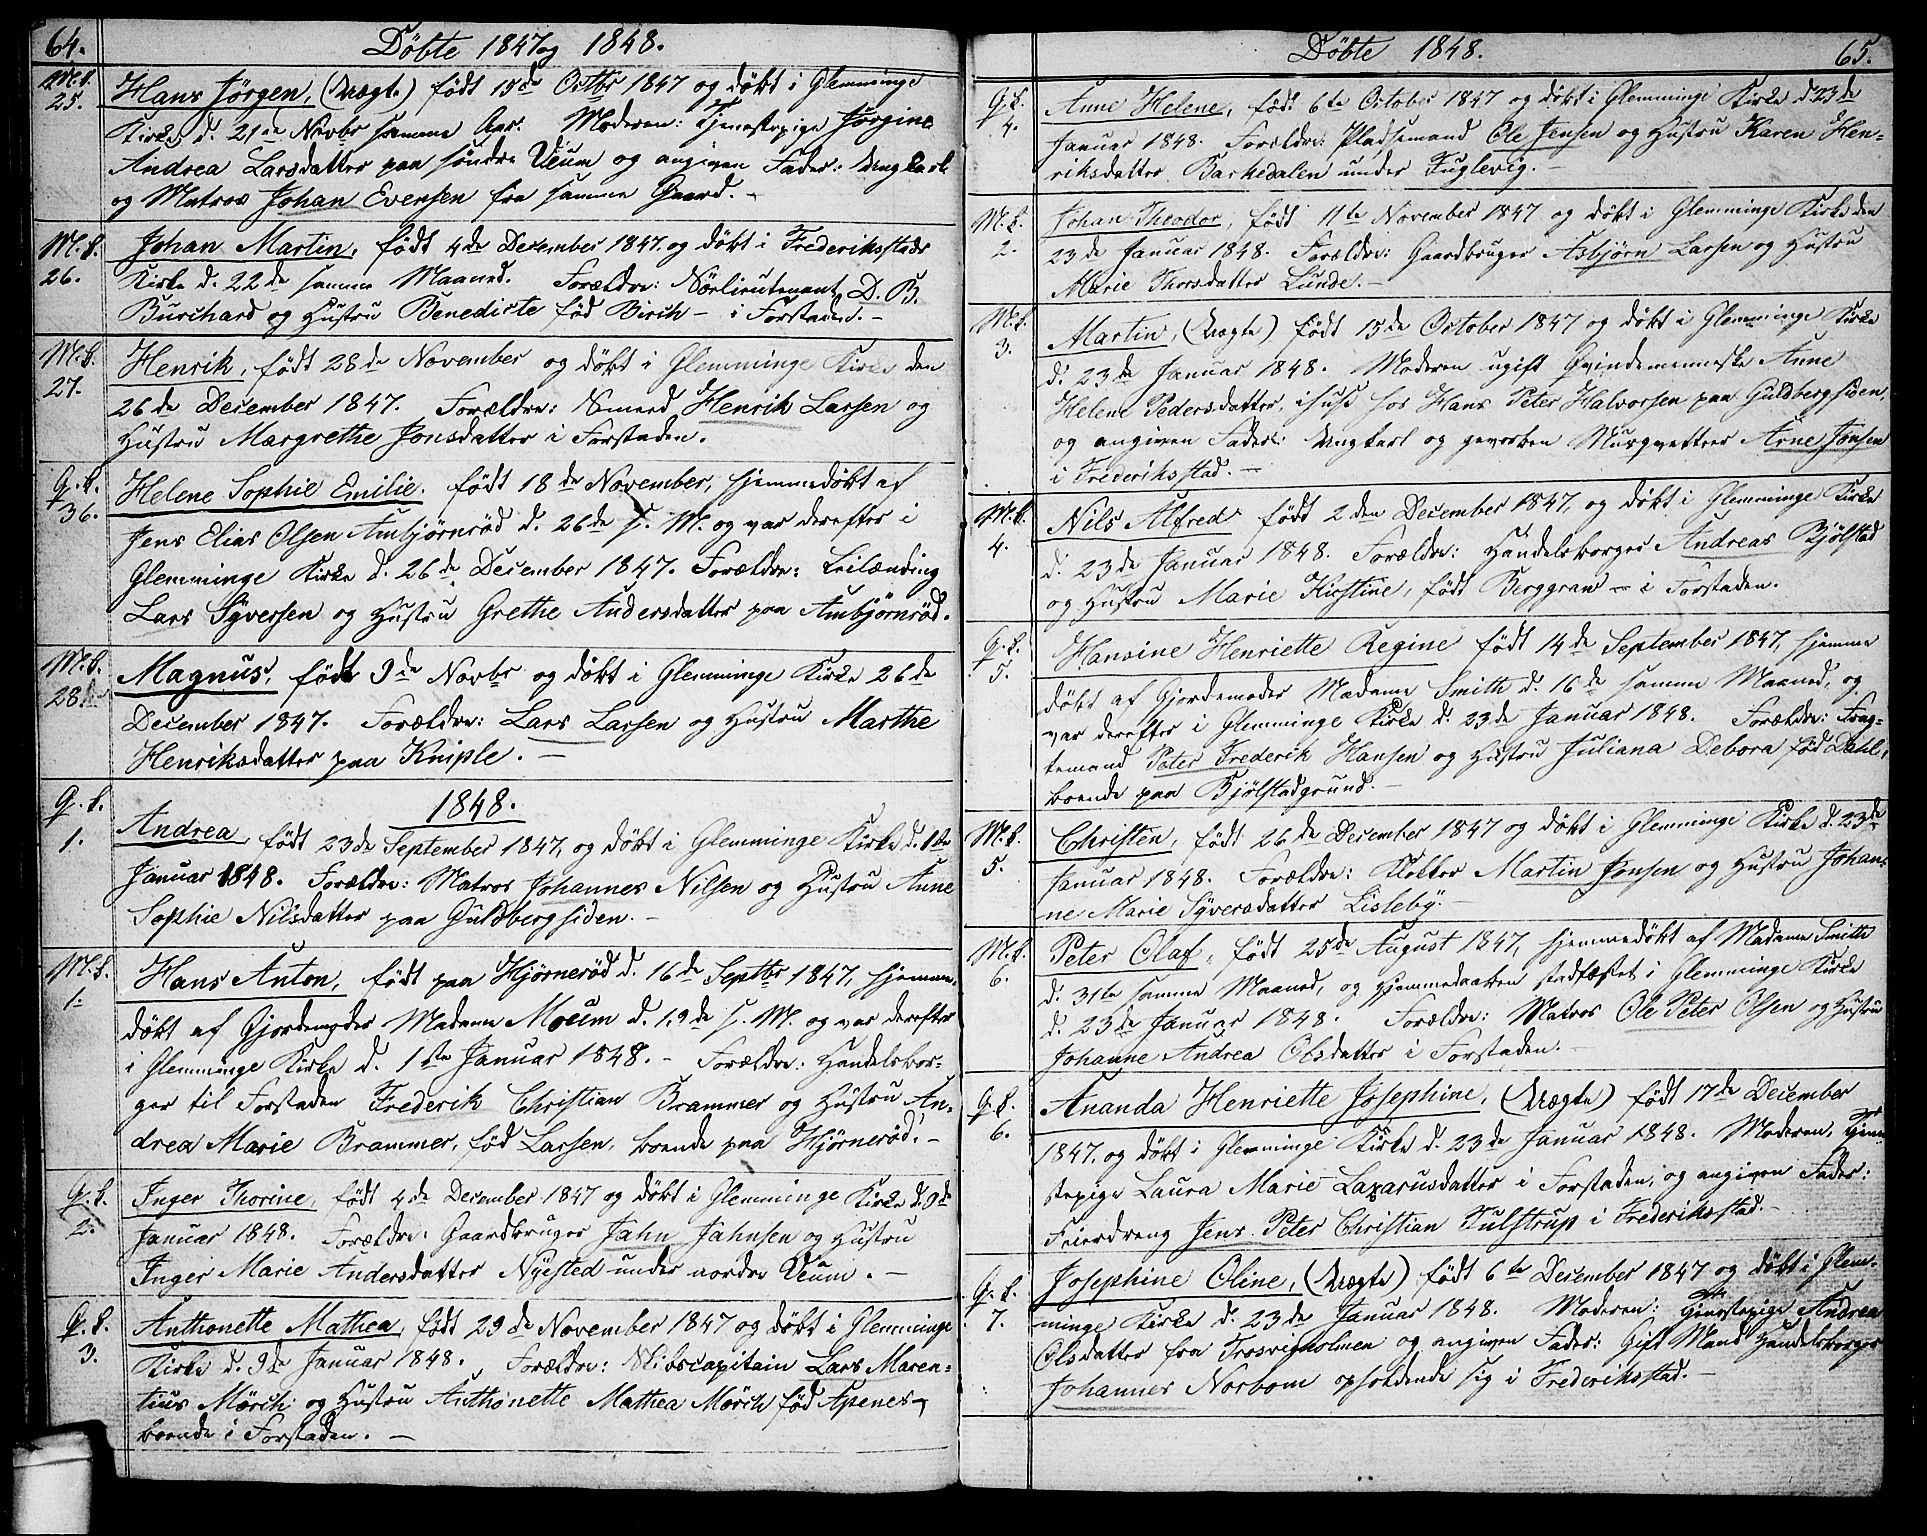 64.
Döbte 1847 og 1848.
M.k.
25.
Hans Jörgen, (Uægte) født 15de Octbr 1847 og døbt i Glemminge
Kirke d. 21de Novbr samme Aar. Moderen: Tjenestepige Jørgine
Andrea Larsdatter paa søndre Veum og angiven Fader: Ungkarl
og Matros Johan Evensen fra samme Gaard. -
M.k.
26.
Johan Martin, født 4de December 1847 og døbt i Frederiksstads
Kirke d. 22de samme Maaned. Forældre: D. B.
Burchard og Hustru Benedicte fød Birch - i Forstaden. -
M.k.
27.
Henrik, født 28de November og døbt i Glemminge Kirke den
26de December 1847. Forældre: Smed Henrik Larsen og
Hustru Margrethe Jonsdatter i Forstaden.
Q.k.
36.
Helene Sophie Emilie. født 18de November, hjemmedøbt af
Jens Elias Olsen Ambjørnrød d. 26de s. M. og var derefter i
Glemminge Kirke d. 26de December 1847. Forældre: Leilænding
Lars Syversen og Hustru Grethe Andersdatter paa Ambjørnrød.
M.k.
28.
Magnus, født 9de Novbr og døbt i Glemminge Kirke 26de
December 1847. Forældre: Lars Larsen og Hustru Marthe
Henriksdatter paa Kniple. -
1848.
Q.k.
1.
Andrea, født 23de September 1847, og døbt i Glemminge Kirke d. 1ste
Januar 1848. Forældre: Matros Johannes Nilsen og Hustru Anne
Sophie Nilsdatter paa Guldbergsiden. -
M.k.
1.
Hans Anton, født paa Hjørnerød d. 16de Septbr 1847, hjemme-
døbt af Gjordemoder Madame Moum d. 19de s. M. og var derefter
i Glemminge Kirke d. 1ste Januar 1848. - Forældre: Handelsbor-
ger til Forstaden Frederik Christian Brammer og Hustru An-
drea Marie Brammer, fød Larsen, boende paa Hjørnerød. -
Q.k.
2.
Inger Thorine, født 4de December 1847 og døbt i Glemminge Kirke d. 9de
Januar 1848. Forældre: Gaardbruger Jahn Jahnsen og Hustru
Inger Marie Andersdatter Nyested under nordre Veum. -
Q.k.
3.
Anthonette Mathea, født 29de November 1847 og døbt i Glemminge
Kirke d. 9de Januar 1848. Forældre: Skibscapitain Lars Maren-
tius Mörch og Hustru Anthonette Mathea Mörch fød Apenes -
boende i Forstaden. -
Döbte 1848.
65.
Q.k.
4.
Anne Helene, født 6te October 1847 og døbt i Glemminge Kirke d. 23de
Januar 1848. Forældre: Pladsemand Ole Jensen og Hustru Karen Hen-
riksdatter Barkedalen under Fuglevig. -
M.k.
2.
Johan Theodor, født 11te November 1847 og døbt i Glemminge Kirke den
23de Januar 1848. Forældre: Gaardbruger Asbjørn Larsen og Hustru
Marie Thorsdatter Lunde. -
M.k.
3.
Martin, (Uægte) født 15de October 1847 og døbt i Glemminge Kirke
d. 23de Januar 1848. Moderen ugift Qvindemenneske Anne
Helene Pedersdatter, i huus hos Hans Peter Halvorsen paa Guldbergsiden,
og angiven Fader: Ungkarl og gevorben Arne Jonsen
i Frederiksstad. -
M.k.
4.
Nils Alfred født 2den December 1847, og døbt i Glemminge Kirke
d. 23de Januar 1848. Forældre: Handelsborger Andreas Bjølstad
og Hustru Marie Kirstine, født Berggran - i Forstaden.
Q.k.
5.
Hansine Henriette Regine født 14de September 1847, hjemme
døbt af Gjordemoder Madame Smith d. 16de samme Maaned, og
var derefter i Glemminge Kirke d. 23de Januar 1848. Forældre: Frag-
temand Peter Frederik Hansen og Hustru Juliana Debora fød Dahl,
boende paa Bjølstadgrund. -
M.k.
5.
Christen, født 26de December 1847 og døbt i Glemminge Kirke d. 23de
Januar 1848. Forældre: Klokker Martin Jensen og Hustru Johan-
ne Marie Syversdatter Lisleby. -
M.k.
6.
Peter Olaf, født 25de August 1847, hjemmedøbt af Madame Smith
d. 31te samme Maaned, og Hjemmedaaben stadfæstet i Glemminge Kirke
d. 23de Januar 1848. Forældre: Matros Ole Peter Olsen og Hustru
Johanne Andrea Olsdatter i Forstaden. -
Q.k.
6.
Ananda Henriette Josephine, (Uægte) født 17de December
1847, og døbt i Glemminge Kirke d. 23de Januar 1848. Moderen, Tjene-
stepige Laura Marie Lazarusdatter i Forstaden, og angiven Fader:
Feierdreng Jens Peter Christian Tulstrup i Frederiksstad. -
Q.k.
7.
Josephine Oline, (Uægte) født 6te December 1847 og døbt i Glem-
minge Kirke d. 23de Januar 1848. Moderen: Tjenestepige Andrea
Olsdatter fra Trosvigholmen og angiven Fader: Gift Mand Handelsborger
Johannes Norbom opholdende sig i Frederiksstad. -